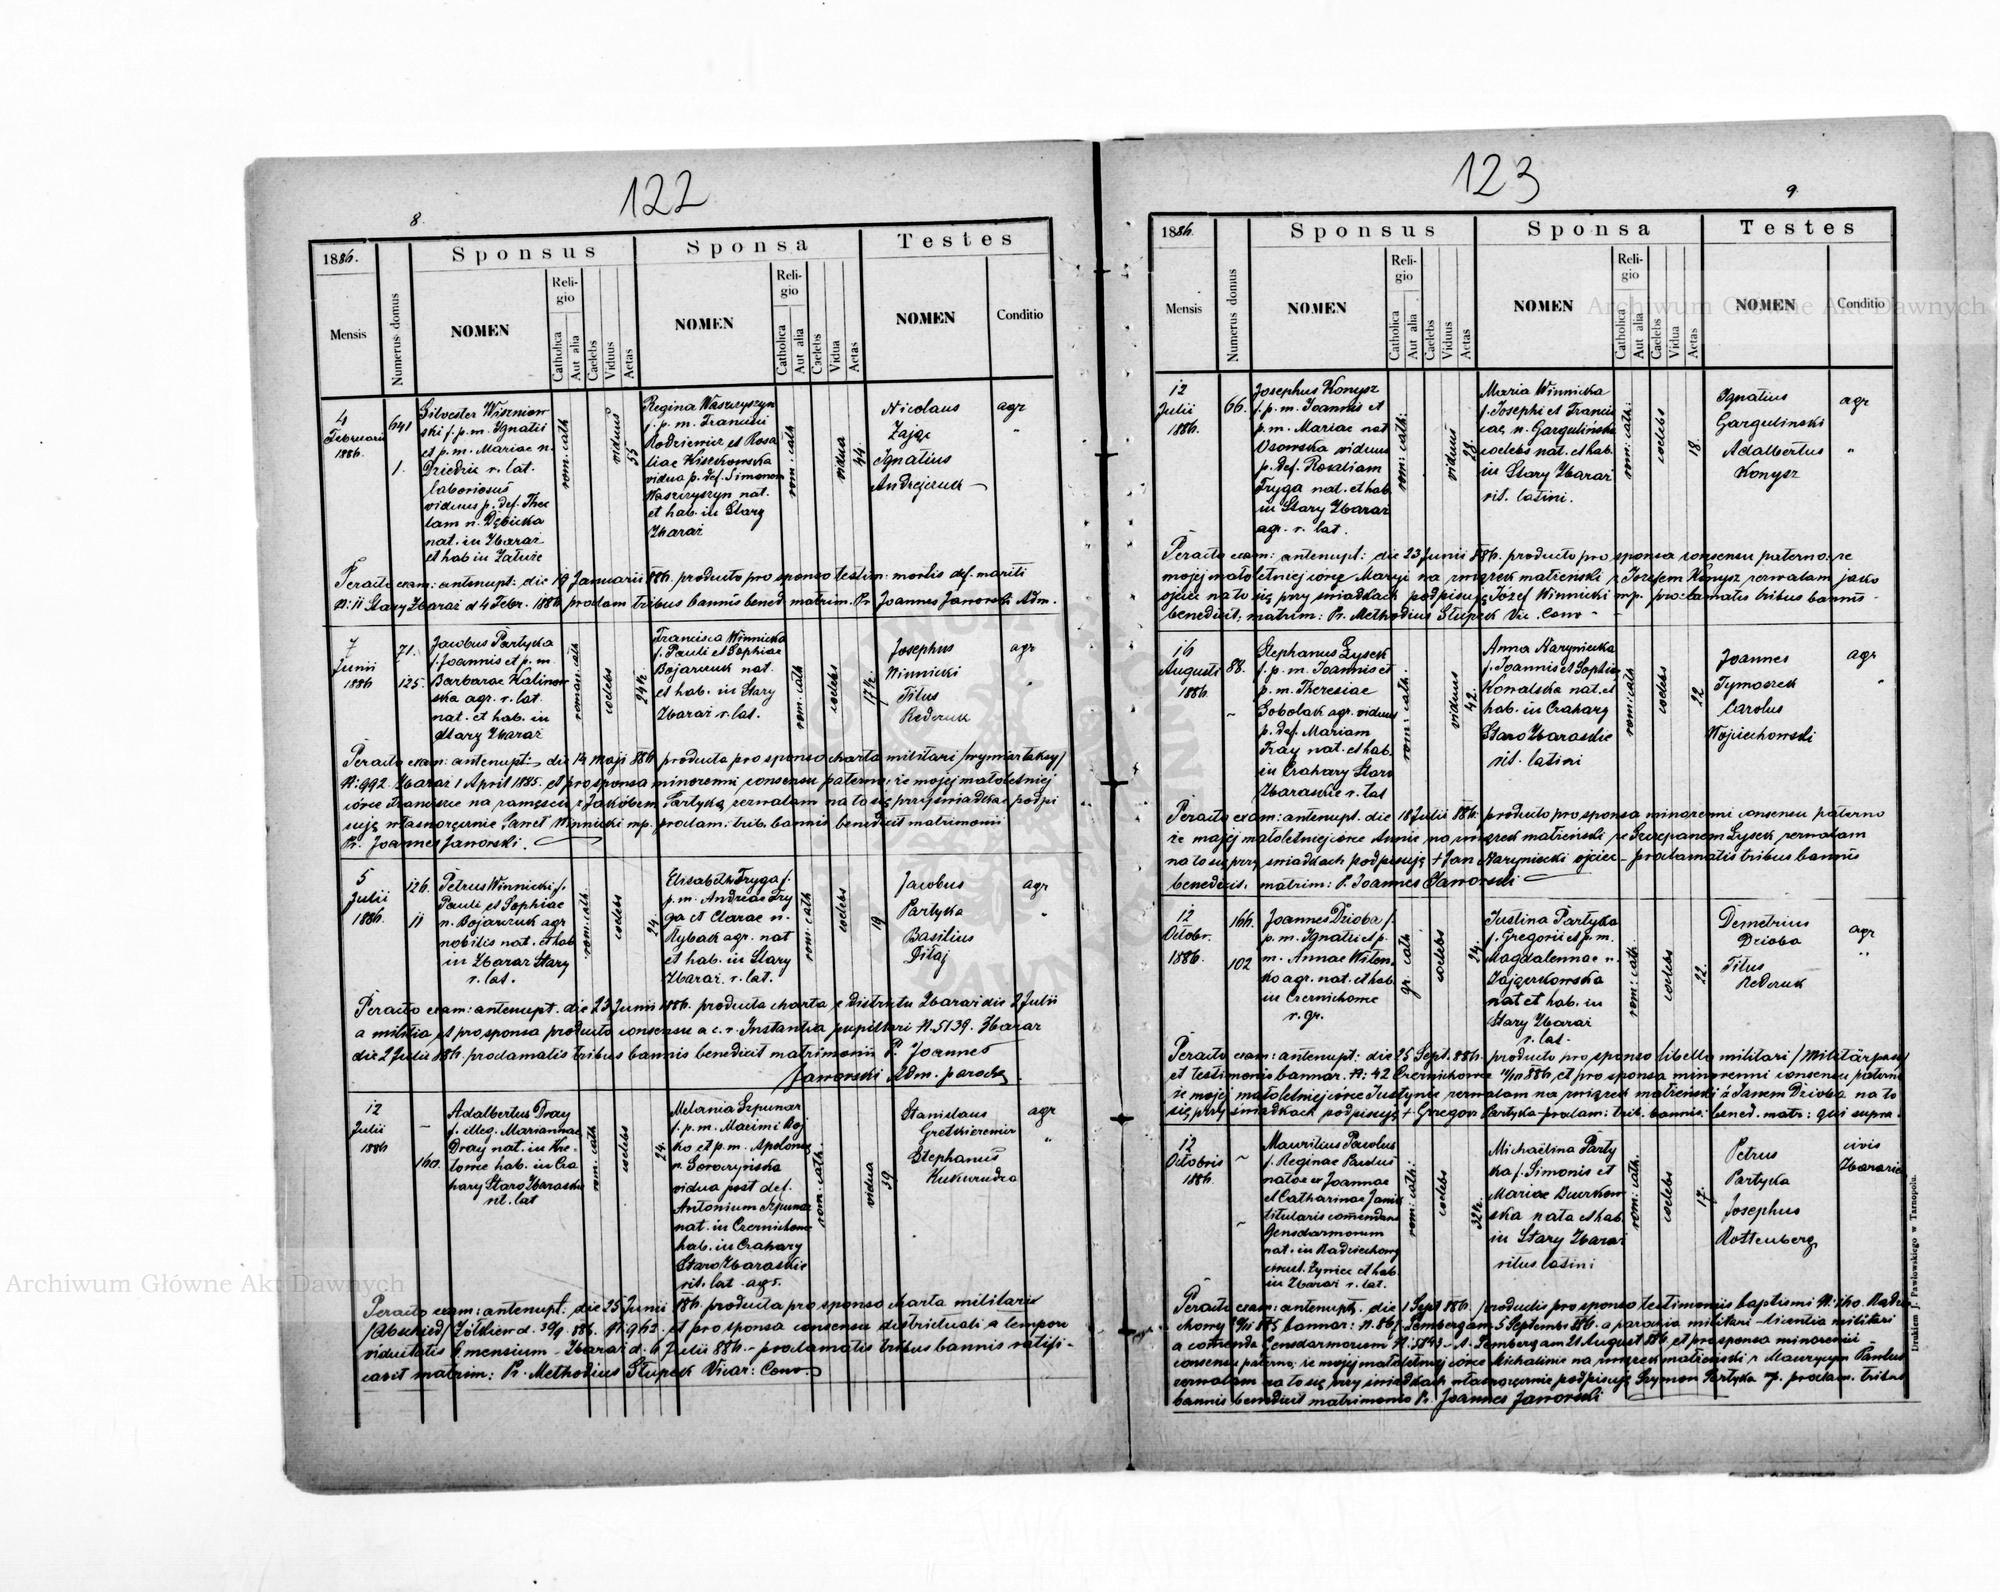 122
8.
1886.
Sponsus
Sponsa
Testes
Mensis
Numerus domus
NOMEN
Religio
Catholica
Aut alia
Caelebs
Viduus
Aetas
NOMEN
Religio
Catholica
Aut alia
Caelebs
Vidua
Aetas
NOMEN
Conditio
4
Februarii
1886.
641
1.
Silvester Wiszniow
ski f. p. m. Ignatii
et p. m. Mariae n.
r. lat.
laboriosus
viduus p. def. Thec
lam n. Dębicka
nat. in Zbaraż
et hab in Załuże
rom: cath
viduus
55
Regina Waszczyszyn
f. p. m. Francisci
Kodziewicz et Rosa
liae
vidua p. def. Simonem
Waszczyszyn nat.
et hab. in Stary
Zbaraż
rom: cath
vidua
44
Nicolaus
Zając
Ignatius
Andrejczuk
agr
"
Peracto exam: antenupt: die 19 Januarii 886. producto pro sponsa testim: mortis def. mariti
N: 11 Stary Zbaraż d 4 Febr. 1886 proclam tribus bannis bened matrim. Pr. Joannes Jaworski Adm.
7
Junii
1886
71.
125.
Jacobus Partyka
f. Joannis et p. m
Barbarae Kalinow
ska agr. r. lat.
nat. et hab. in
Stary Zbaraż
roman: cath
coelebs
24½
Francisca Winnicka
f. Pauli et Sophiae
Bojarczuk nat.
et hab. in Stary
Zbaraż r. lat.
rom: cath
coelebs
17½
Josephus
Winnicki
Titus
Rederuk
agr
"
Peracto exam: antenupt: die 14 Maji 886 producta pro sponso charta militari /wymiar taksy/
N: 992. Zbaraż 1 April 1885. et pro sponsa minorenni consensu paterno: że mojej małoletniej
córce Franciszce na zamęście z Jakóbem Partyką zezwalam na to się przy świadkac podpi
suję własnoręcznie Paweł Winnicki mp. proclam: trib. bannis benedicit matrimonii
Pr. Joannes Jaworski.
5
Julii
1886.
126.
11
Petrus Winnicki f.
Pauli et Sophiae
n. Bojarczuk agr
nobilis nat. et hab
in Zbaraż Stary
r. lat.
rom: cath
coelebs
24.
Elisabetha Fryga f.
p. m. Andreae Fry
ga et Clarae n.
Rybak agr. nat
et hab. in Stary
Zbaraż. r. lat.
rom: cath
coelebs
19
Jacobus
Partyka
Basilius
Pitaj
agr
"
Peracto exam: antenupt. die 23 Junii 1886. producta charta e districtu Zbaraż die 2 Julii
a militia, et pro sponsa producto consensu a c. r. Instantia pupillari N. 5139. Zbaraż
die 2 Julii 886. proclamatis tribus bannis benedicit matrimonii P. Joannes
Jaworski Adm. paroch.
12
Julii
1886
–
160.
Adalbertus Dray
f. illeg. Mariannae
Dray nat. in Kre-
towce hab. in Cza
hary Staro Zbaraskie
rit. lat
rom: cath
coelebs
24.
Melania Szpunar
f. p. m. Maximi Boj
ko et p. m. Apolonia
n. Soroczyńska
vidua post def.
Antonium Szpunar
nat. in Czernichowce
hab. in Czahary
Staro Zbaraskie
rit. lat. agr.
rom: cath.
vidua
39
Stanislaus
Gretkierewicz
Stephanus
Kukurudza
agr
"
Peracto exam: antenupt: die 25 Junii 886. producta pro sponso charta militari
/Abschied/ Żółkiew d. 30/9 886. N. 963. et pro sponsa consensu districtuali a tempore
viduitatis 6 mensium – Zbaraż d. 6 Julii 886. – proclamatis tribus bannis ratifi-
cavit matrim: Pr. Methodius Słupek Vicar: Conv.
123
9.
1886.
Sponsus
Sponsa
Testes
Mensis
Numerus domus
NOMEN
Religio
Catholica
Aut alia
Caelebs
Viduus
Aetas
NOMEN
Religio
Catholica
Aut alia
Caelebs
Vidua
Aetas
NOMEN
Conditio
12
Julii
1886.
66.
Josephus Konysz
f. p. m. Joannis et
p. m. Mariae nat
Osowska viduus
p. def. Rosaliam
Fryga nat. et hab.
in Stary Zbaraż
agr. r. lat.
rom: cath:
viduus
28.
Maria Winnicka
f. Josephi et Francis
cae n. Gargulińska
coelebs nat. et hab.
in Stary Zbaraż
rit. latini.
rom: cath:
coelebs
18.
Ignatius
Gargulinski
Adalbertus
Konysz
agr
"
Peracto exam: antenupt: die 23 Junii 886. producto pro sponsa consensu paterno: że
mojej małoletniej córce Maryi na związek małżeński z Józefem Konysz zezwalam jako
ojciec na to się przy świadkach podpisuję Józef Winnicki mp. proclamatis tribus bannis
benedicit: matrim: Pr. Methodius Słupek Vic. Conv –
16
Augusti
1886.
88.
~
Stephanus Łysek
f. p. m. Joannis et
p. m. Theresiae
Sobolak agr. viduus
p. def. Mariam
Fray nat. et hab.
in Czahary Staro
Zbaraskie r. lat
rom: cath.
viduus
42.
Anna Narynicka
f. Joannis et Sophia
Kowalska nat. et
hab. in Czahary
Staro Zbaraskie
rit. latini
rom: cath
coelebs
22
Joannes
Tymoszek
Carolus
Wojciechowski
agr
"
Peracto exam: antenupt. die 18 Julii 886. producto pro sponsa minorenni consensu paterno
że mojej małoletniej córce Annie na związek małżeński ze Szczepanem Łysek zezwalam
na to się przy świadkach podpisuję + Jan Narynicki ojciec – proclamatis tribus bannis
benedicit. matrim: P. Joannes Jaworski
12
Octobr.
1886.
166.
102
Joannes Dzioba f.
p. m. Ignatii et p.
m. Annae Witen
ko agr. nat. et hab.
in Czernichowce
r. gr.
gr. cath
coelebs
24.
Justina Partyka
f. Gregorii et p. m.
Magdalennae n.
Zajączkowska
nat et hab. in
Stary Zbaraż
r. lat.
rom: cath
coelebs
22.
Demetrius
Dzioba
Titus
Rederuk
agr
"
Peracto exam: antenupt: die 25 Sept. 886. producto pro sponso libello militari /Militärpass/
et testimonio bannor. N: 42 Czernichowce 886, et pro sponsa minorenni consensu patern
że mojej małoletniej córce Justynie zezwalam na związek małżeński z Janem Dzioba na to
się przy świadkach podpisuję + Gregor Partyka – proclam: trib. bannis: bened. matr: qui supra.
12
Octobris
1886.
~
~
Mauritius Paulus
f. Reginae Paulus
natae ex Joannae
et Catharinae Janik
titularis comendans
Gensdarmorum
nat. in Radziechowy
hab.
in Zbaraż r. lat.
rom: cath:
coelebs
32½.
Michaëlina Party
ka f. Simonis et
Mariae Dwerkow
ska nata et hab.
in Stary Zbaraż
ritus latini
rom: cath.
coelebs
17.
Petrus
Partyka
Josephus
Rottenberg
civis
Zbaraże
Peracto exam: antenupt. die 1 Sept 886. productis pro sponso testimoniis baptismi N: 160. Radzie
chowy 885 bannor: N: 86/ Lembergam 5 Septembr 886. a parochia militari – licentia militari
a comenda Gensdarmorum N: 5843 – d. Lembergam 21 August 886. et pro sponsa minorenni
consensu paterno; że mojej małoletniej córce Michalinie na związek małżeński z Maurycym Paulus
zezwalam na to się przy świadkach własnoręcznie podpisuję Szymon Partyka mp. proclam. tribus
bannis benedicit matrimonio Pr. Joannes Jaworski
Drukiem J. Pawłowskiego w Tarnopolu.
Archiwum Główne Akt Dawnych
Archiwum Główne Akt Dawnych